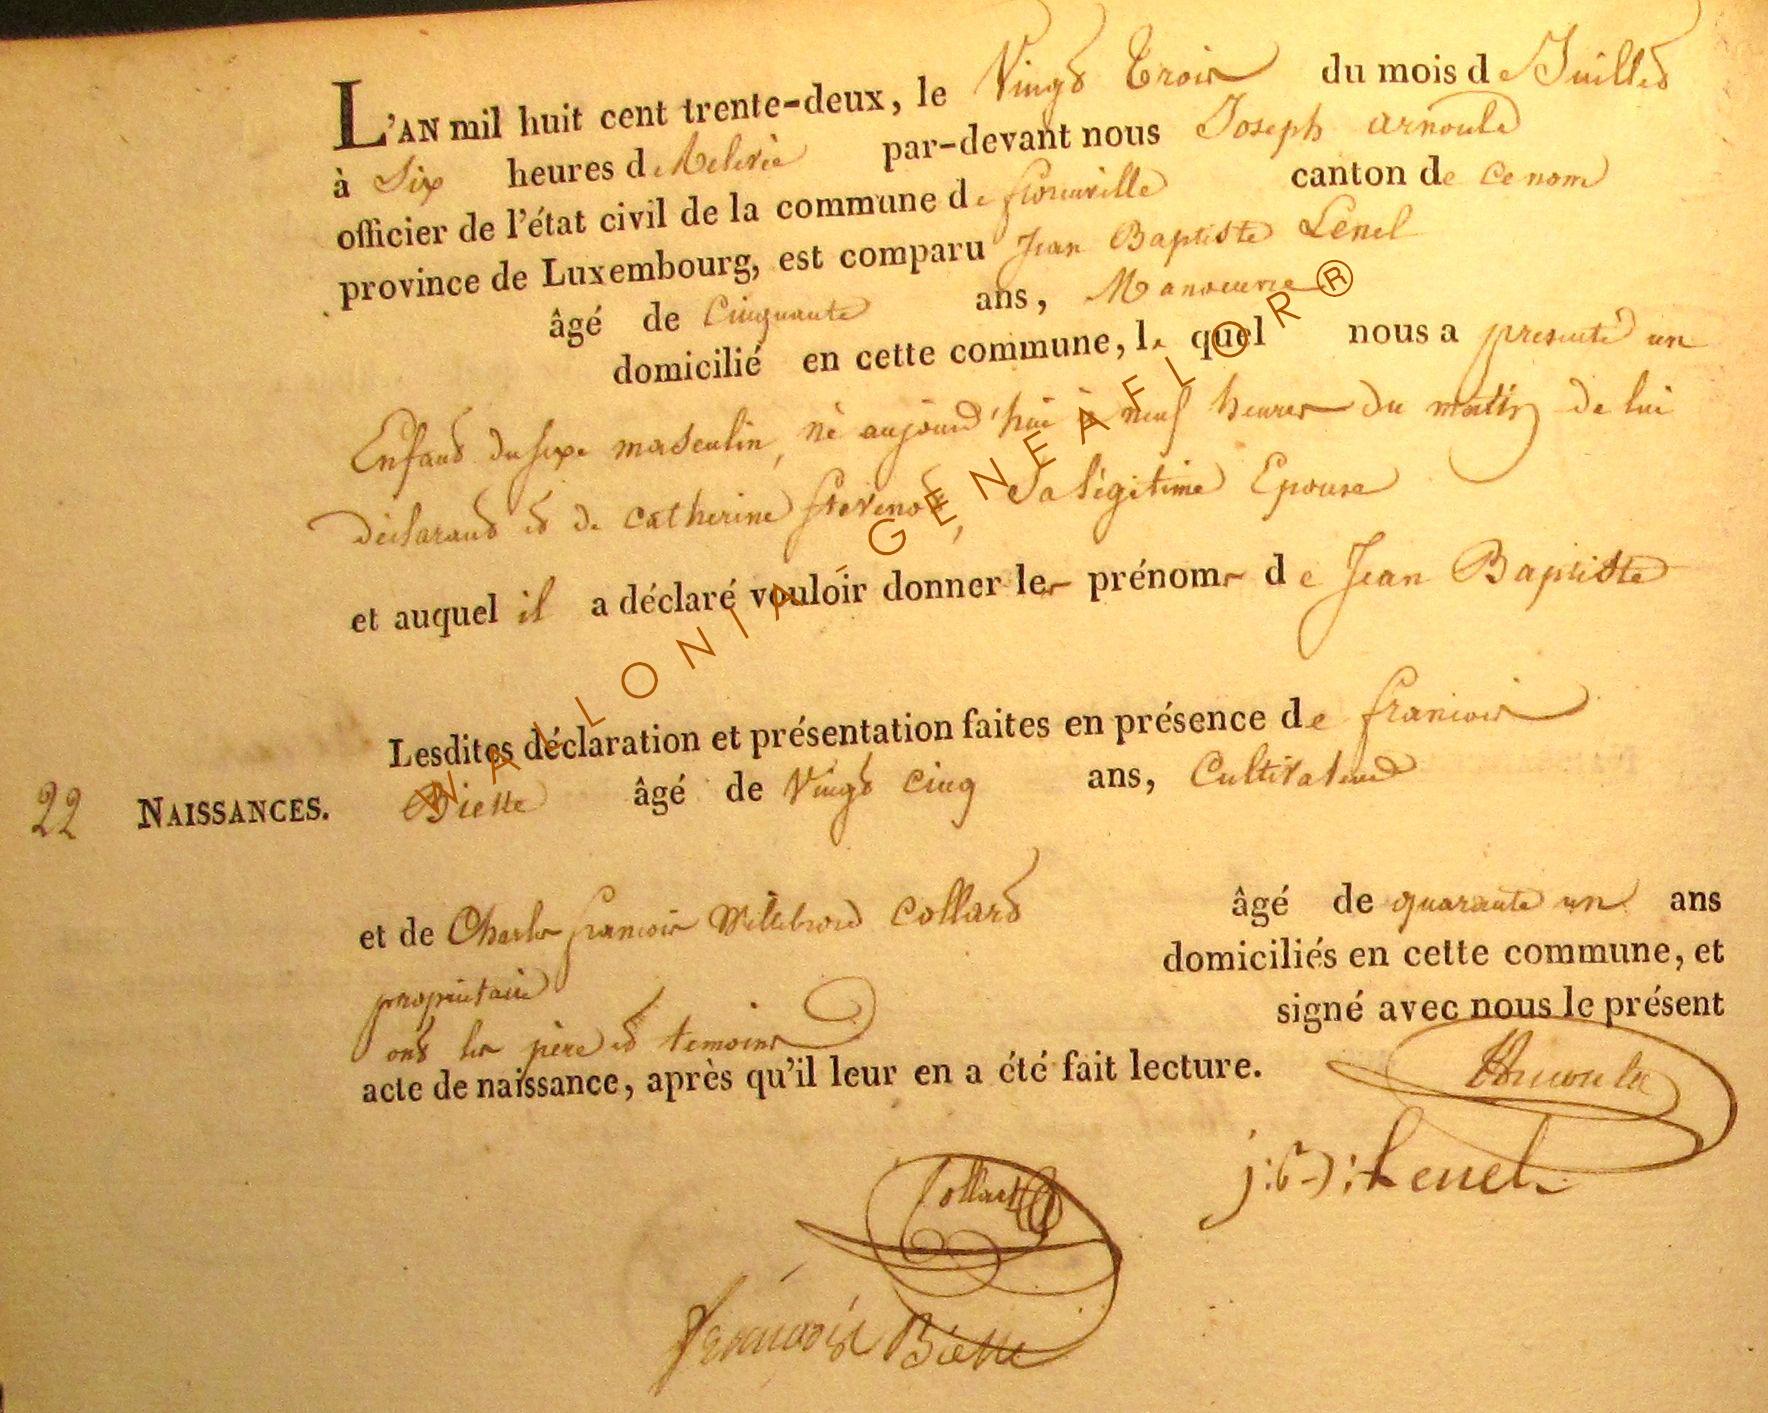 L'AN mil huit cent trente-deux, le Vingt Trois du mois de Juillet
à Six heures de Relevée par-devant nous Joseph arnould
officier de l'état civil de la commune de canton de ce nom
province de Luxembourg, est comparu Jean Baptiste Lenel
âgé de Cinquante ans, Manoeuvre
domicilié en cette commune, le quel nous a presenté un
Enfant du sexe masculin, né aujourd'hui à neuf heures du matin de lui
déclarant et de catherine Stevenot, Sa légitime Epouse
et auquel il a déclaré vouloir donner les prénoms de Jean Baptiste
Lesdites déclaration et présentation faites en présence de francois
22 NAISSANCES. Biette âgé de Vingt cinq ans, Cultivateur
et de Charles francois Willebrord Collard âgé de quarante un ans
propriétaire domiciliés en cette commune, et
ont les père et temoins signé avec nous le présent
acte de naissance, après qu'il leur en a été fait lecture.
Arnould
j:b:Lenel
Collard
francois Biette
WALLONIA - GENEAFLOR ®